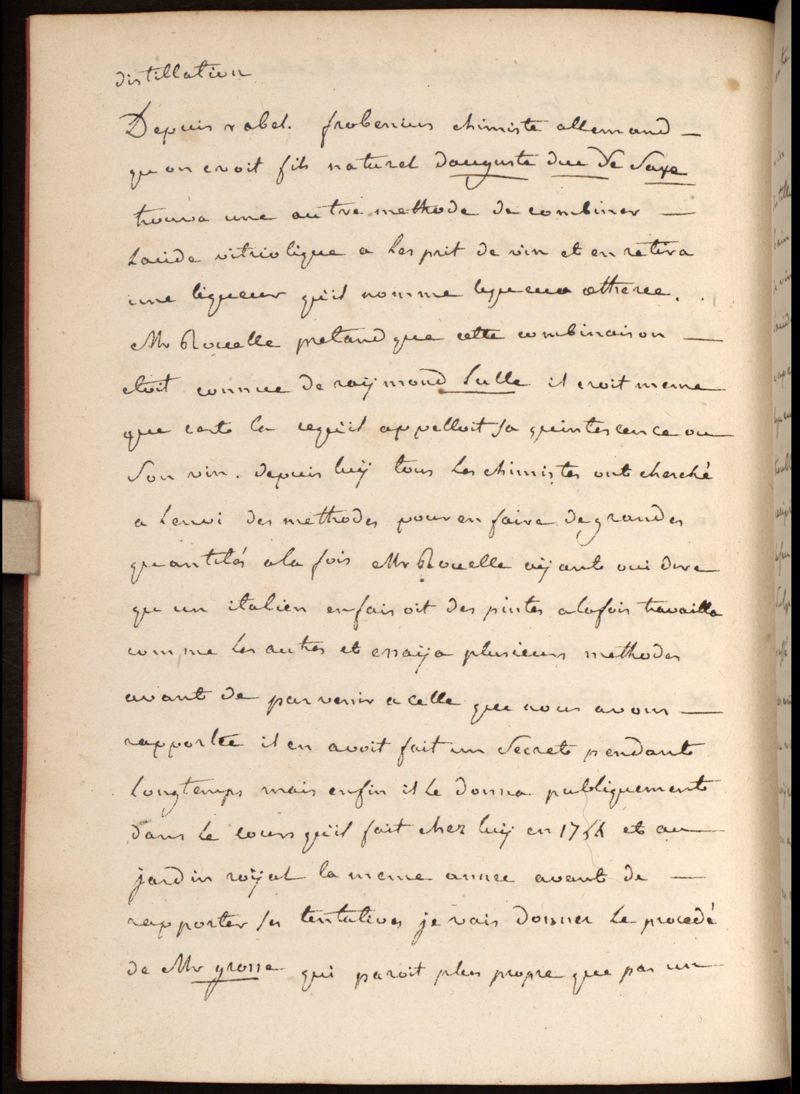 distillation
Depuis rabel. frobenius chimiste allemand —
qu on croit fils naturel dauguste duc de Saxe
trouva une autre methode de combiner —
lacide vitriolique a les prit de vin et en retira
une liqueur qu'il nomme liqueur ætheree.
Mr Rouelle pretand que cette combinaison —
etoit connue de raÿmond Lulle il croit meme
que cest la cequ'il appelloit sa quintescence ou
Son vin. depuis luÿ tous les chimistes ont cherché
a lenvi des methodes pour en faire de grandes
quantités ala fois Mr Rouelle aÿant oui dire
qu un italien enfaisoit des pintes alafois travailla
comme les autres et essaÿa plusieurs methodes
avant de parvenir a celle que nous avons —
rapportée il en avoit fait un Secret pendant
longtemps mais enfin il le donna publiquement
dans le cours qu'il fait chez luÿ en et au
jardin roÿal la meme annee avant de —
rapporter ses tentatives je vais donner le procedé
de Mr grosse qui paroit plus propre que pas un